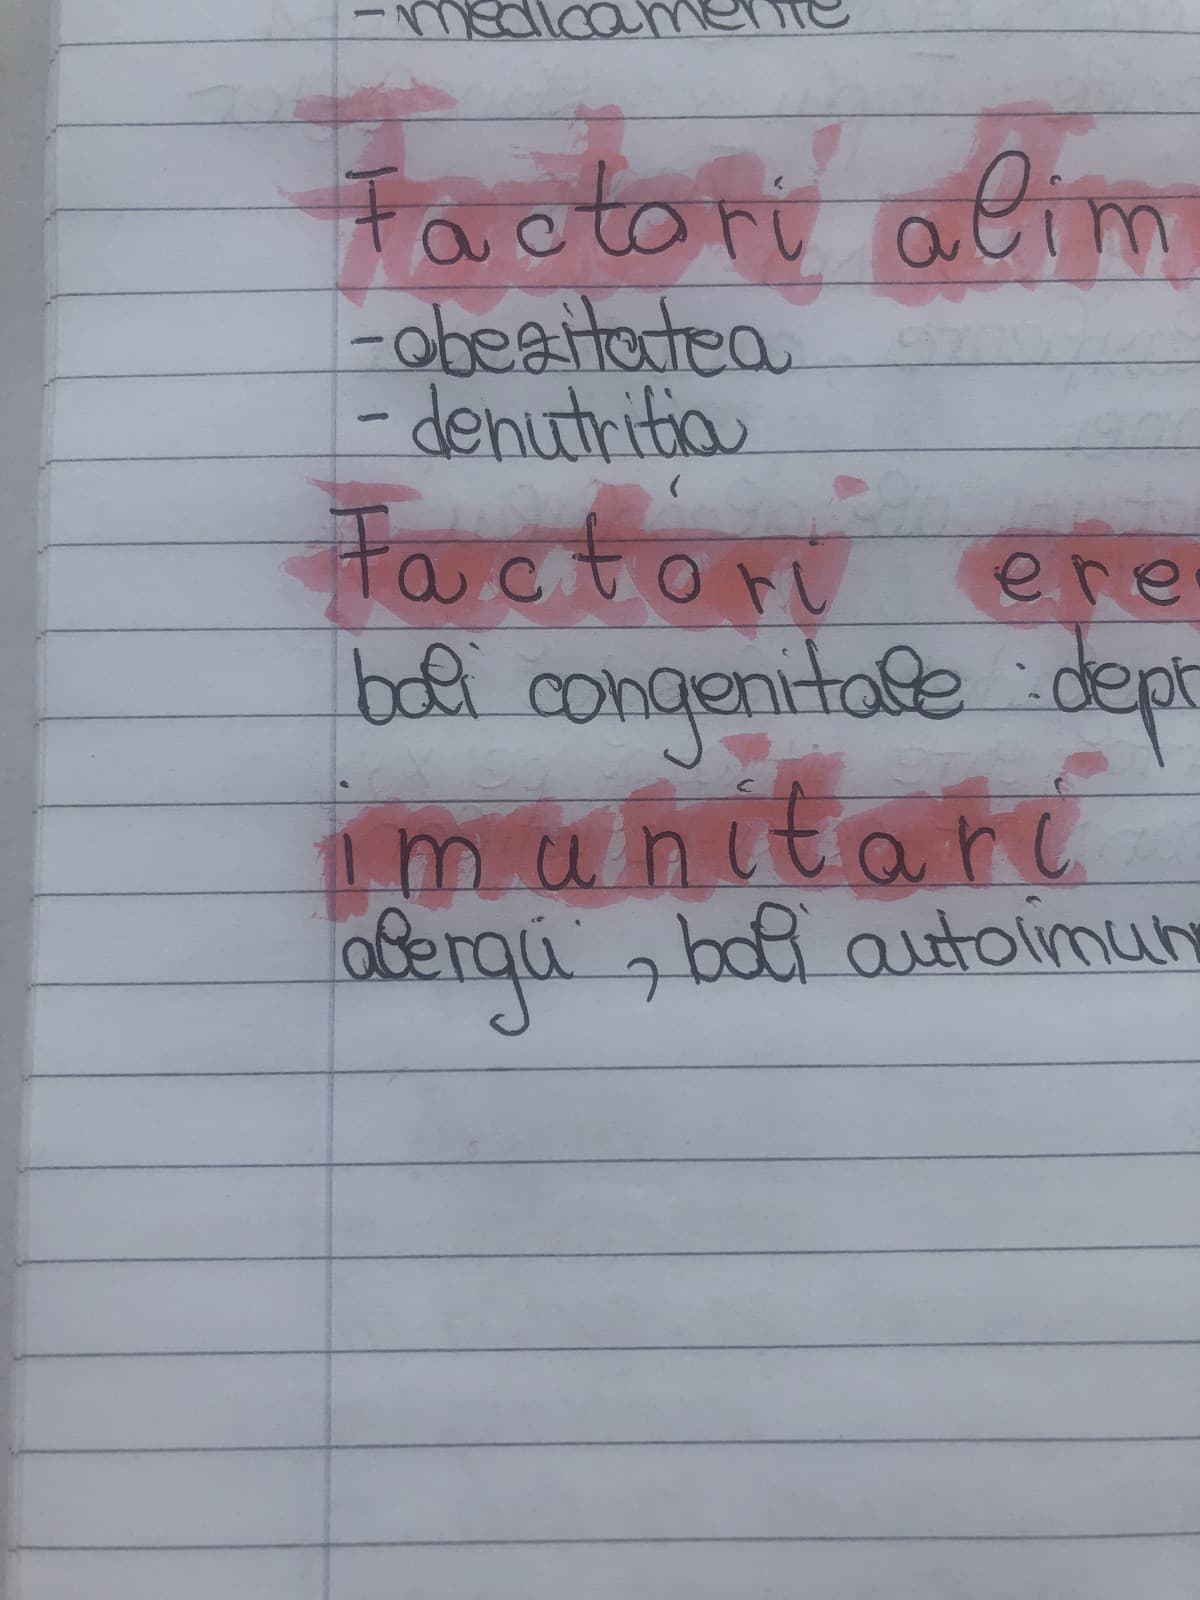 -medicamente
Factori alim
-obezitatea
- denutritia
Factori ere
boli congenitale : depr
imunitari
alergii , boli autoimun